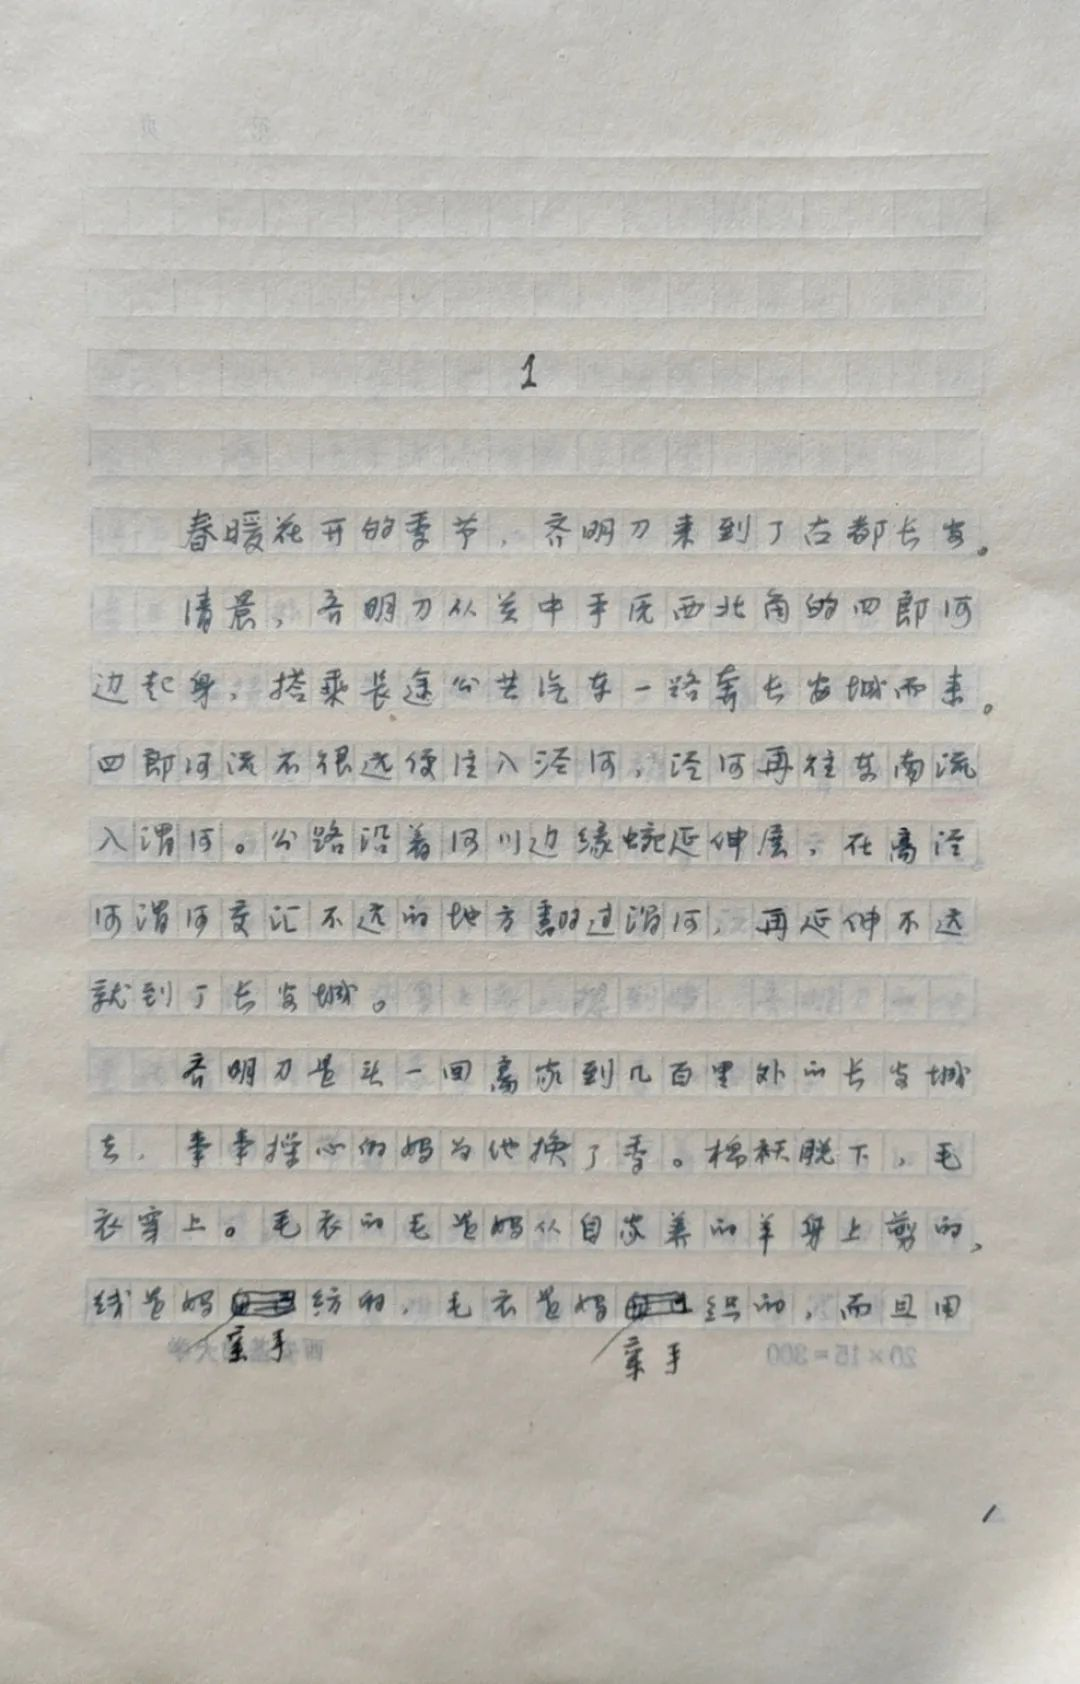 1
春暖花开的季节，齐明刀来到了古都长安。
清晨，齐明刀从关中平原西北角的四郎河
边起身，搭乘长途公共汽车一路奔长安城而来。
四郎河流不很远便注入泾河，泾河再往东南流
入渭河。公路沿着河川边缘蜿延伸展，在离泾
河渭河交汇不远的地方跨过渭河，再延伸不远
就到了长安城。
齐明刀是头一回离家到几百里外的长安城
去，事事操心的妈为他换了季。棉袄脱下，毛
衣穿上。毛衣的毛是妈从自家养的羊身上剪的，
线是妈纺的，毛衣是妈织的，而且用
亲手 亲手
20×15=300
1